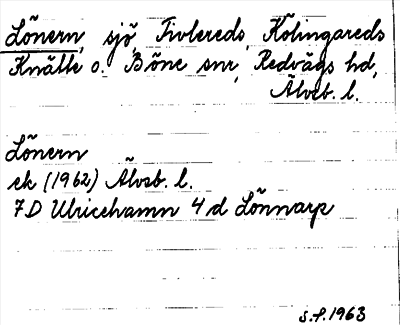 Lönern, sjö, Tivlereds, Kölingareds
Knätte o. Böne snr, Redvägs hd,
Älvsb. l.
Lönern
ek (1962) Älvsb. l.
7D Ulricehamn 4 d Lönnarp
S.F. 1963